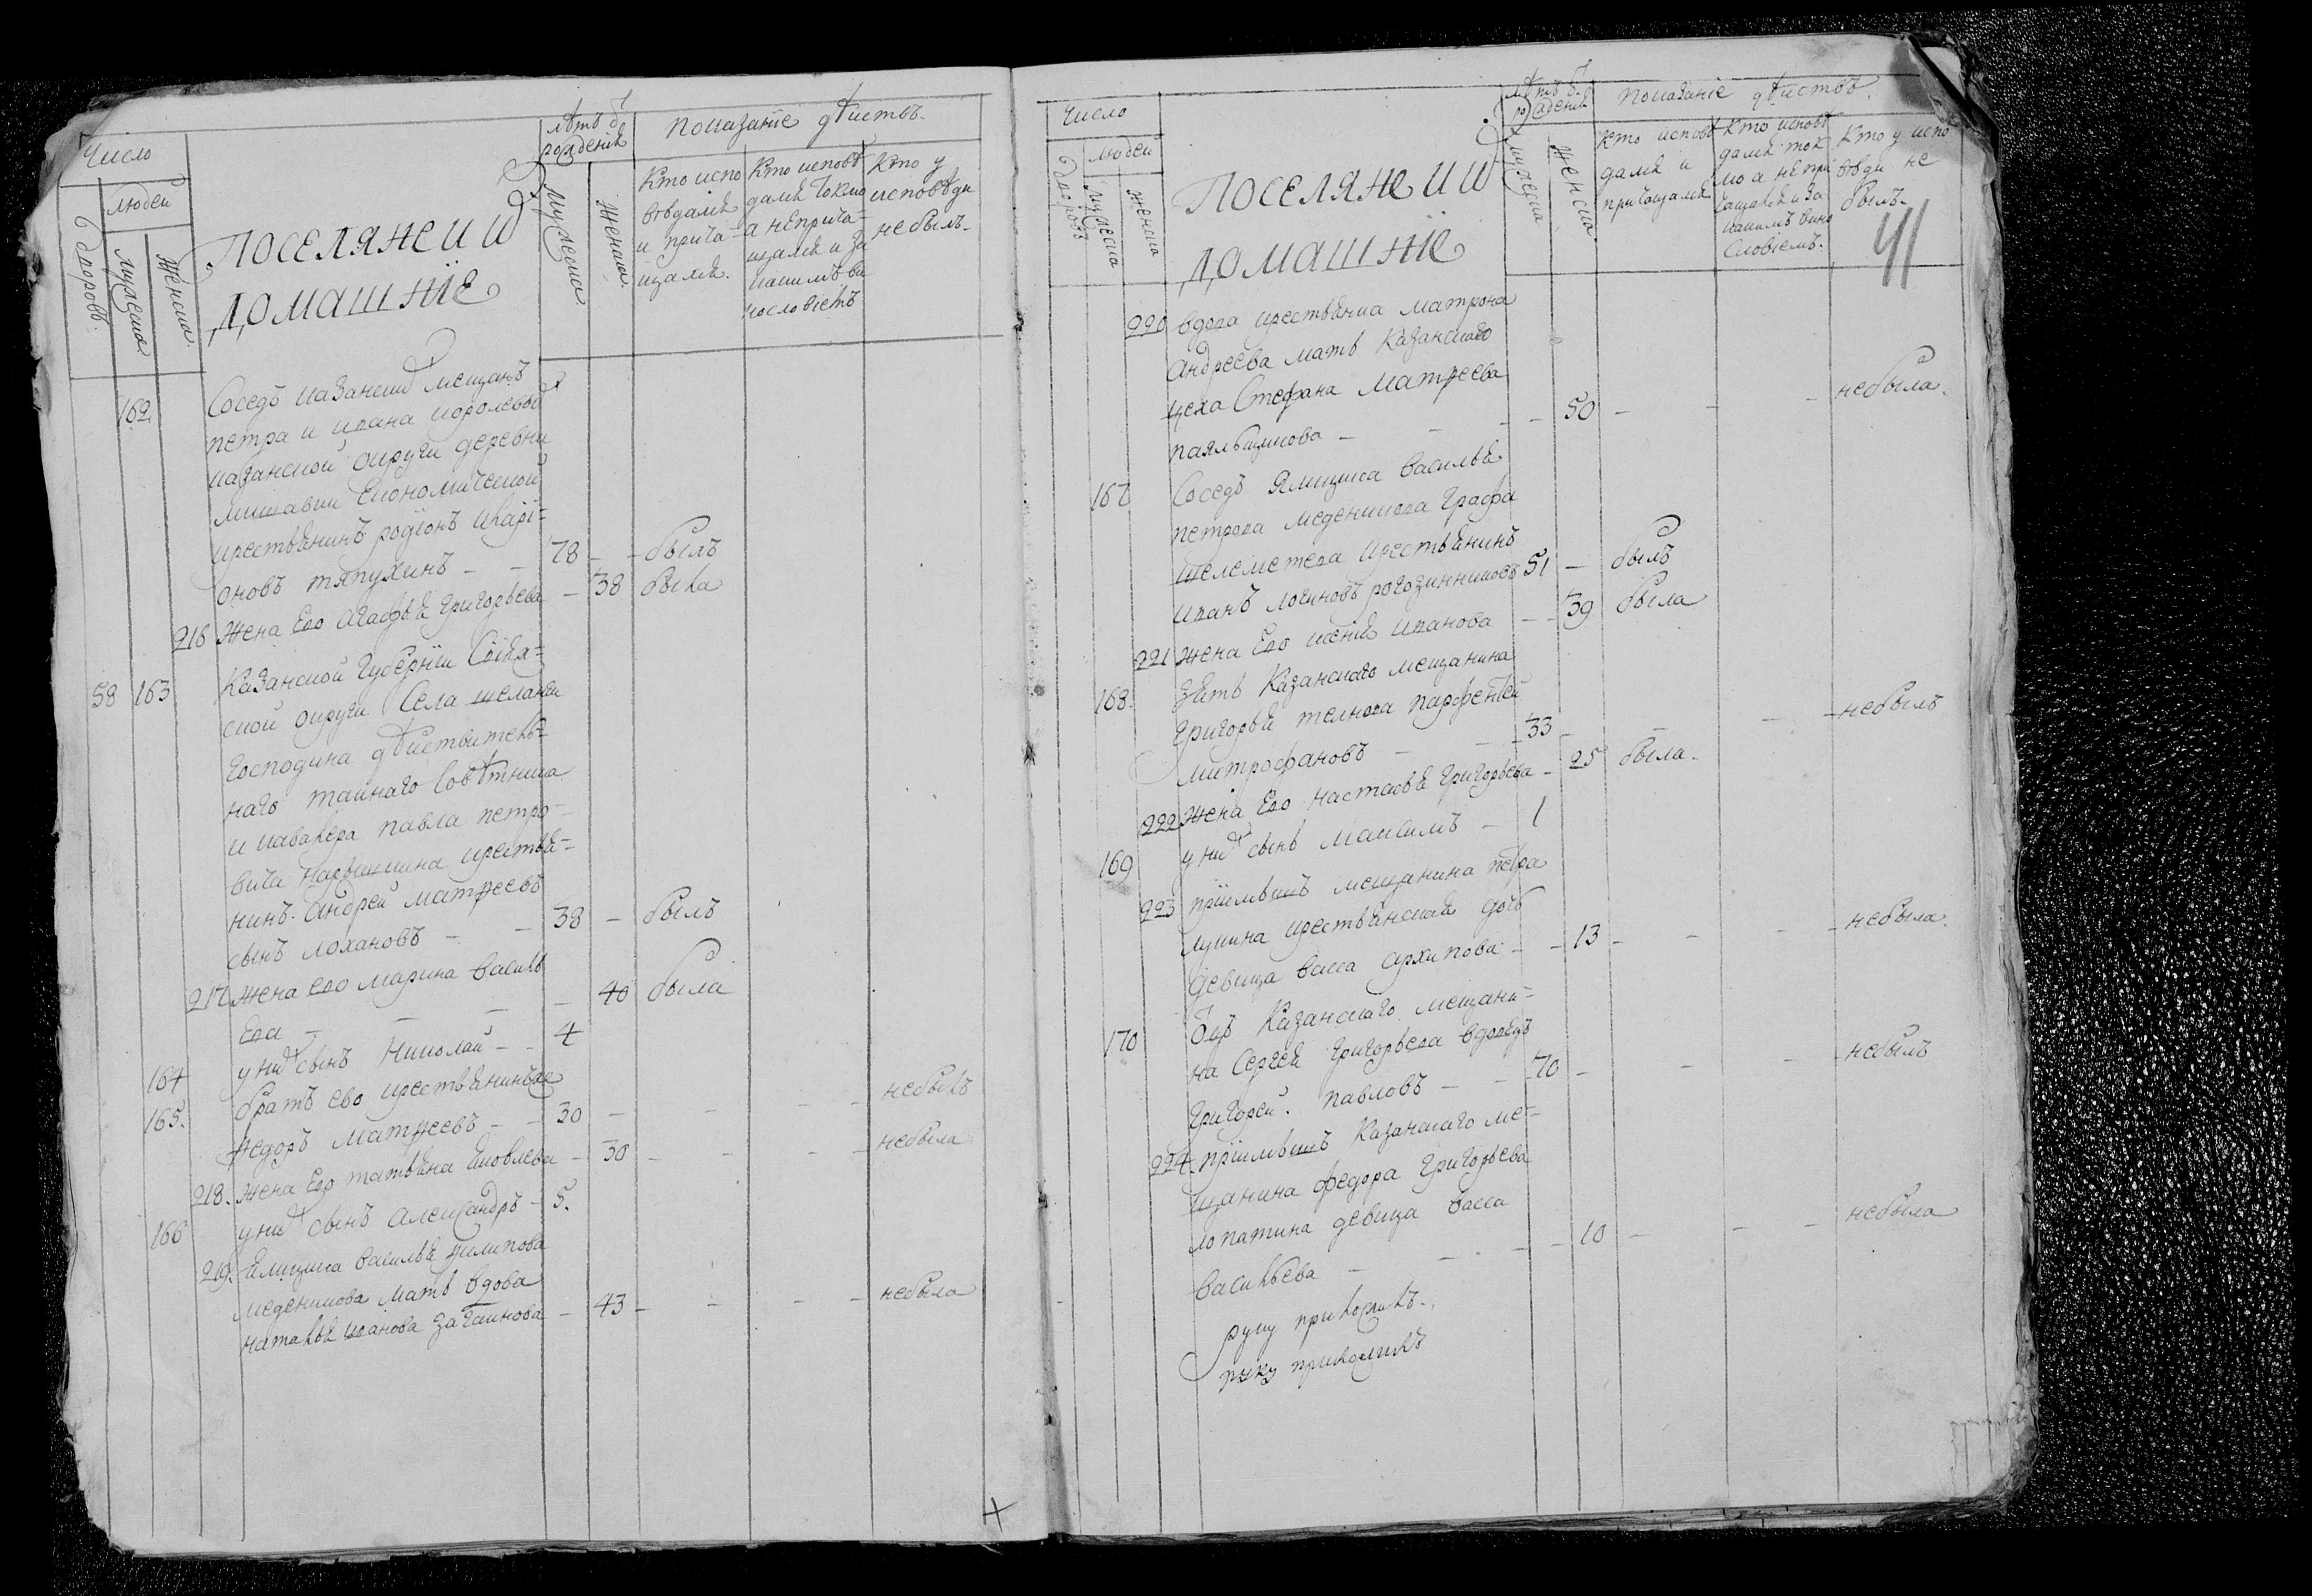 Число
людей
дворовъ
мужеска
женска
Поселяне и ихъ
домашніе
лѣтъ ѿ
рожденія
мужеска
женска
показаніе дѣйствъ.
Кто испо
вѣдался
и прича-
щался.
Кто исповѣ
дался токмо
а неприча-
щался и за
какимъ ви
нословіемъ
Кто у
исповѣди
небылъ.
162
Соседъ казанскихъ мещанъ
петра и ивана королевыхъ
казанской округи деревни
економической
крестьянинъ родіонъ иларі-
оновъ тяпухинъ - - 78 - - былъ
216 жена Ево агафья григорьева - 38 была
58 163 Казанской Губерніи Свіяж-
ской округи Села шеланги
господина дѣйствитель-
наго тайнаго Совѣтника
и кавалера павла петро-
вича нарышкина крестья-
нинъ. андрей матѳеевъ
сынъ лохановъ - - 38 - былъ
217 жена ево марина василь
ева - - - - 40 была
164 у нихъ сынъ Николай - - 4
165. братъ ево крестьянинъ же
ѳедоръ матѳеевъ - - 30 - - - - небылъ
218. жена Ево татьяна яковлева - 30 - - - - небыла
166 у нихъ сынъ александръ - 5.
219. Ямщика василья филипова
меденикова мать вдова
наталья иванова - 43 - - - - небыла
Число
людей
дворовъ
мужеска
женска
Поселяне и ихъ
домашніе
лѣтъ ѿ
рожденія
мужеска
женска
показаніе дѣйствъ.
Кто исповѣ
дался и
причащался
Кто исповѣ
дался ток
мо а не при
чащался и за
какимъ вино
словіемъ.
Кто у испо
вѣди не
былъ.
41
220 вдова крестьянка матрона
андреева мать Казанскаго
цеха Стефана Матѳеева
паяльщикова - - - - 50 - - - небыла.
167 Соседъ Ямщика василья
петрова меденикова графа
шелеметева крестьянинъ
иванъ логиновъ рогозинниковъ 51 - былъ
221 жена Ево ксенія иванова - - 39 была
168. Зять Казанскаго мещанина
григорья телнова парфентей
митрофановъ - - 33 - - - - небылъ
222 жена Ево настасья григорьева - 25 была.
169 у нихъ сынъ максимъ - 1
223 пріимышъ мещанина петра
лунина крестьянская дочь
девица васса архипова - - 13 - - - - небыла.
170 Оцъ Казанскаго мещани-
на Сергея григорьева вдовецъ
григорей. павловъ - - 70 - - - - небылъ
224. пріимышъ Казанскаго ме-
щанина федора григорьева
лопатина девица васса
васильева - - - - 10 - - - небыла
руку приложилъ.
руку приложилъ